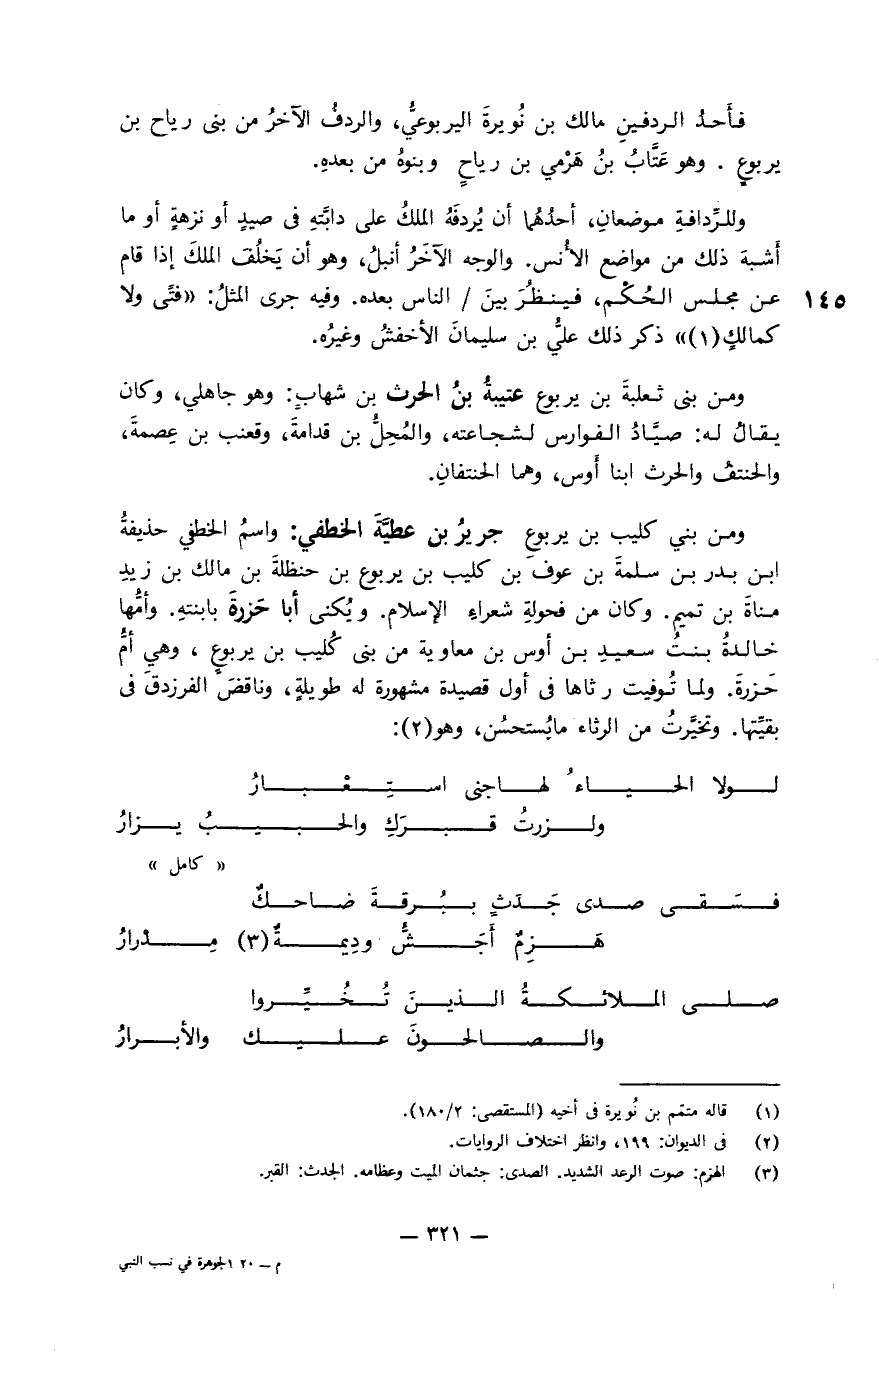 فأَحدُ الردفينِ مالك بن نُويرةَ اليربوعيُّ، والردفُ الآخرُ من بنى رياح بن
يربوعٍ . وهو عَتَّابُ بنُ هَرْمي بن رياحٍ وبنوهُ من بعدهِ.
وللرِّدافةِ موضعانِ، أحدُهُما أن يُردفَهُ الملكُ على دابَّتهِ فى صيدٍ أو نزهةٍ أو ما
أشبهَ ذلك من مواضع الأُنس. والوجه الآخَرُ أنبلُ، وهو أن يَخلُفَ الملكَ إذا قام
عن مجلس الحُكْمِ، فينظُرَ بينَ / الناس بعده. وفيه جرى المثلُ: «فتًى ولا ١٤٥
كمالكٍ(١)» ذكر ذلك عليُّ بن سليمانَ الأخفشُ وغيرُه.
ومن بنى ثعلبةَ بن يربوع عتيبةُ بنُ الحرث بن شهابٍ: وهو جاهلي، وكان
يقالُ له: صيَّادُ الفوارس لشجاعته، والمُحِلُّ بن قدامةَ، وقعنب بن عِصمةَ،
والحنتفُ والحرث ابنا أَوس، وهما الحنتفانِ.
ومن بني كليب بن يربوعٍ جريرُ بن عطيَّةَ الخطفي: واسمُ الخطفي حذيفةُ
ابن بدر بن سلمةَ بن عوف بن كليب بن يربوع بن حنظلةَ بن مالك بن زيدِ
مناةَ بن تميم. وكان من فحولةِ شعراءِ الإسلام. ويُكنى أبا حَزرةَ بابنتهِ. وأمُّها
خالدةُ بنتُ سعيدِ بن أوس بن معاوية من بنى كُليب بن يربوعٍ ، وهي أمُّ
حَزرةَ. ولما تُوفيت رثاها فى أول قصيدة مشهورة له طويلةٍ، وناقضَ الفرزدقَ فى
بقيَّتها. وتخيَّرتُ من الرثاء مايُستحسُن، وهو(٢):
لولا الحياءُ لهاجنى استِعْبارُ
ولزرتُ قبرَكِ والحبيبُ يزارُ
« كامل »
فسَقى صدى جَدَثٍ ببُرقةَ ضاحكٌ
هَزِمٌ أَجَشُّ وديمةٌ(٣) مِدْرارُ
صلى الملائكةُ الذينَ تُخُيِّروا
والصالحونَ عليك والأبرارُ
(١) قاله متمّم بن نُويرة فى أخيه (المستقصى: ١٨٠/٢).
(٢) فى الديوان: ١٩٩، وانظر اختلاف الروايات.
(٣) الهزم: صوت الرعد الشديد. الصدى: جثمان الميت وعظامه. الجدث: القبر.
— ٣٢١ —
م — ٢٠ الجوهرة في نسب النبي